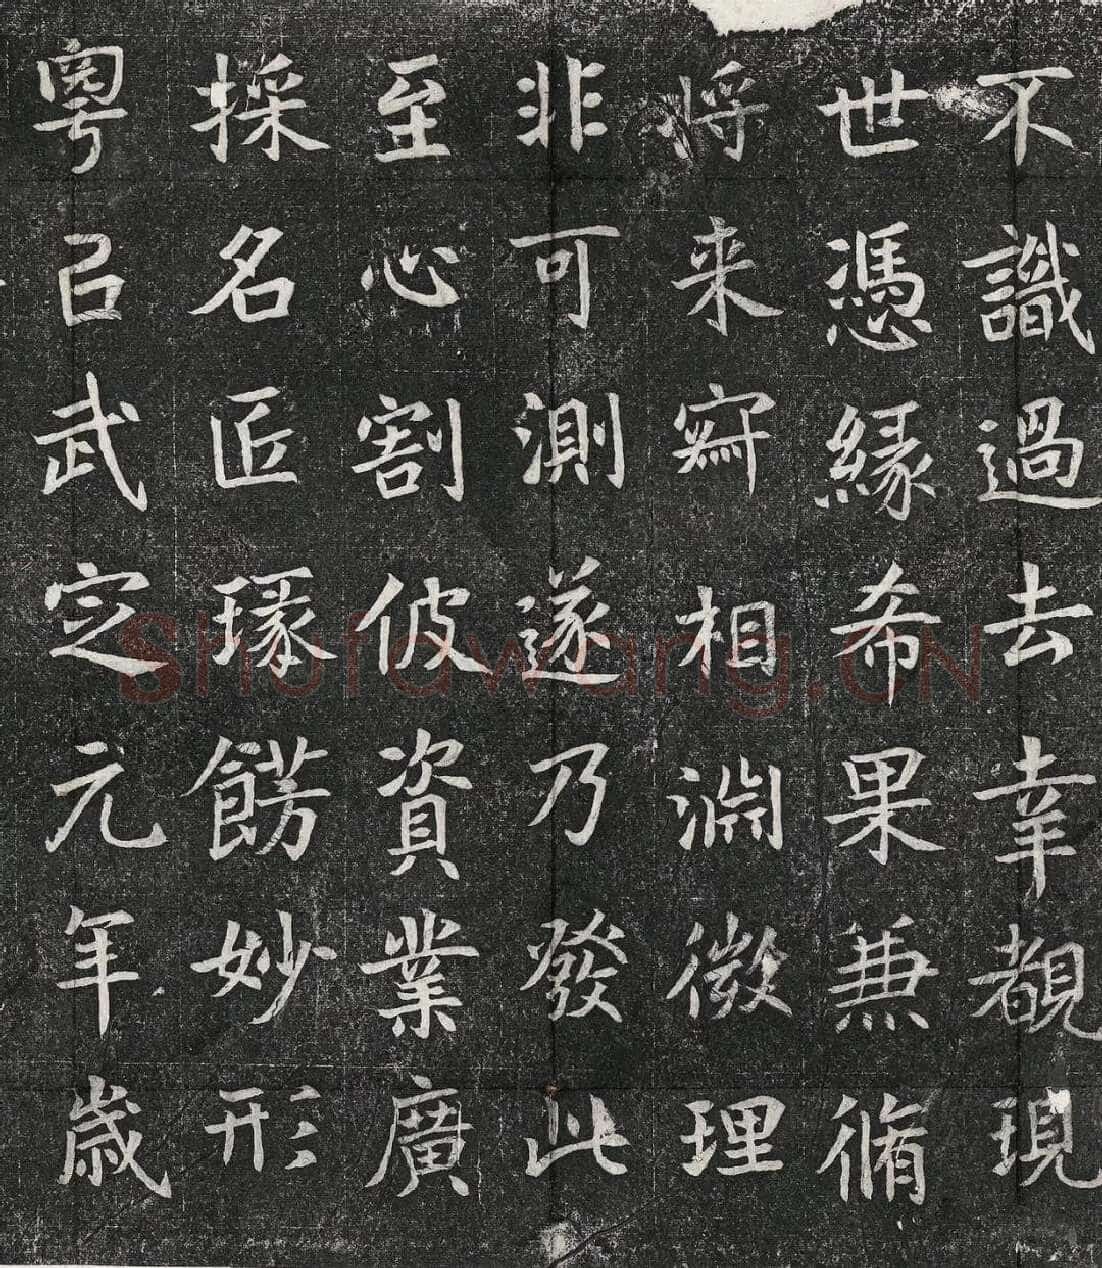 不識過去幸覩現
世憑緣希果兼脩
將来寂相淵微理
非可測遂乃發此
至心割彼資業廣
採名匠瑑餝妙形
粤以武定元年歲
Shufawang.CN